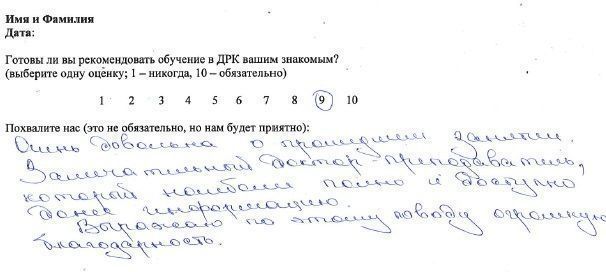 Имя и Фамилия
Дата:
Готовы ли вы рекомендовать обучение в ДРК вашим знакомым?
(выберите одну оценку; 1 – никогда, 10 – обязательно)
1 2 3 4 5 6 7 8 9 10
Похвалите нас (это не обязательно, но нам будет приятно):
Очень довольна о прошедшем занятии.
Замечательный доктор преподаватель,
который наиболее полно и доступно
донес информацию.
Выражаю по этому поводу огромную
благодарность.